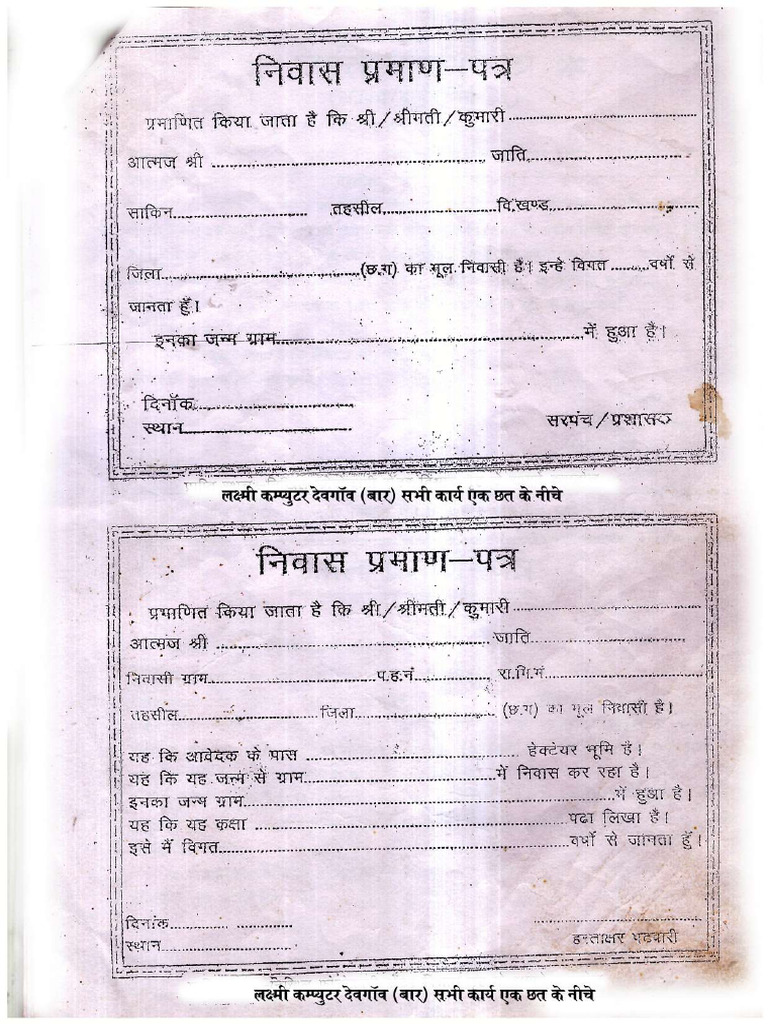 निवास प्रमाण–पत्र
प्रमाणित किया जाता है कि श्री/श्रीमती/कुमारी
आत्मज श्री जाति
साकिन तहसील वि.खण्ड
जिला (छ.ग) का मूल निवासी है। इन्हे विगत वर्षो से
जानता हूँ।
इनका जन्म ग्राम में हुआ है।
दिनॉक
स्थान सरपंच/प्रशासक
लक्ष्मी कम्प्युटर देवगॉव (बार) सभी कार्य एक छत के नीचे
निवास प्रमाण–पत्र
प्रमाणित किया जाता है कि श्री/श्रीमती/कुमारी
आत्मज श्री जाति
निवासी ग्राम प.ह.नं. रा.नि.मं.
तहसील जिला (छ.ग) का मूल निवासी है।
यह कि आवेदक के पास हेक्टेयर भूमि है।
यह कि यह जन्म से ग्राम में निवास कर रहा है।
इनका जन्म ग्राम में हुआ है।
यह कि यह कक्षा पढा लिखा है।
इसे मैं विगत वर्षो से जानता हूँ।
दिनांक
स्थान हस्ताक्षर पटवारी
लक्ष्मी कम्प्युटर देवगॉव (बार) सभी कार्य एक छत के नीचे